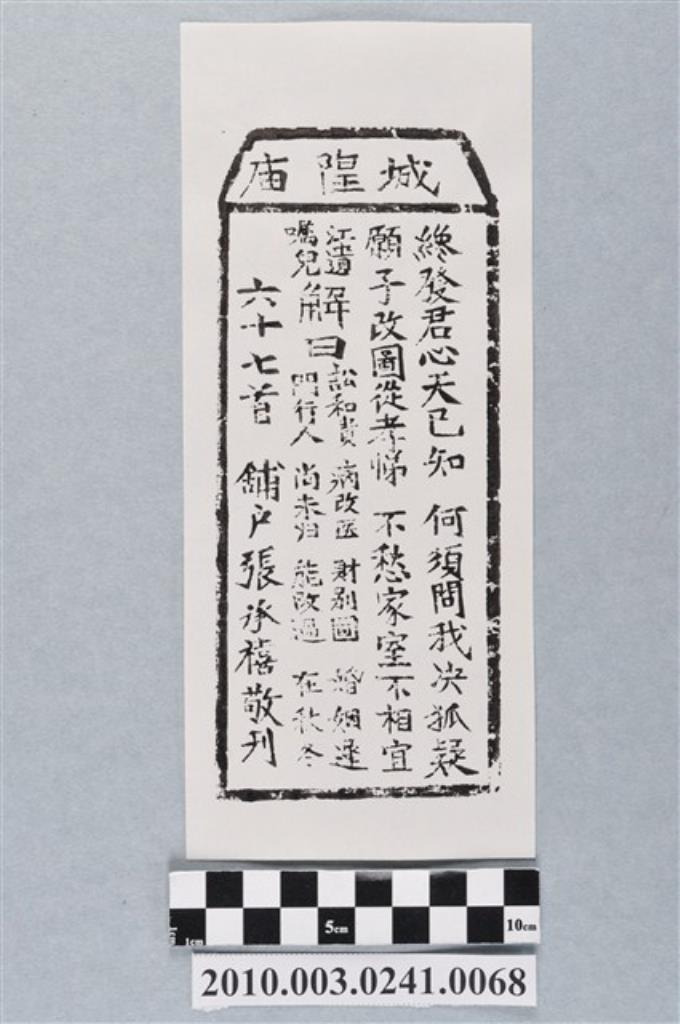 城隍庙
終發君心天已知 何須問我决狐疑
願子改圖從孝悌 不愁家室不相宜
江遺囑兒
解曰
訟和貴 病改医 財别圖 婚姻遲
問行人 尚未归 能改過 在秋冬
六十七首 舖户張承禧敬刊
1cm 5cm 10cm
2010.003.0241.0068